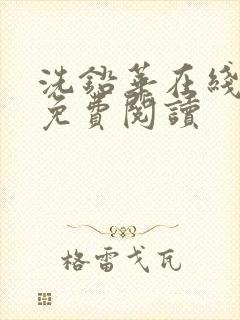 洗鉛華在綫
免費閱讀
格雷戈瓦